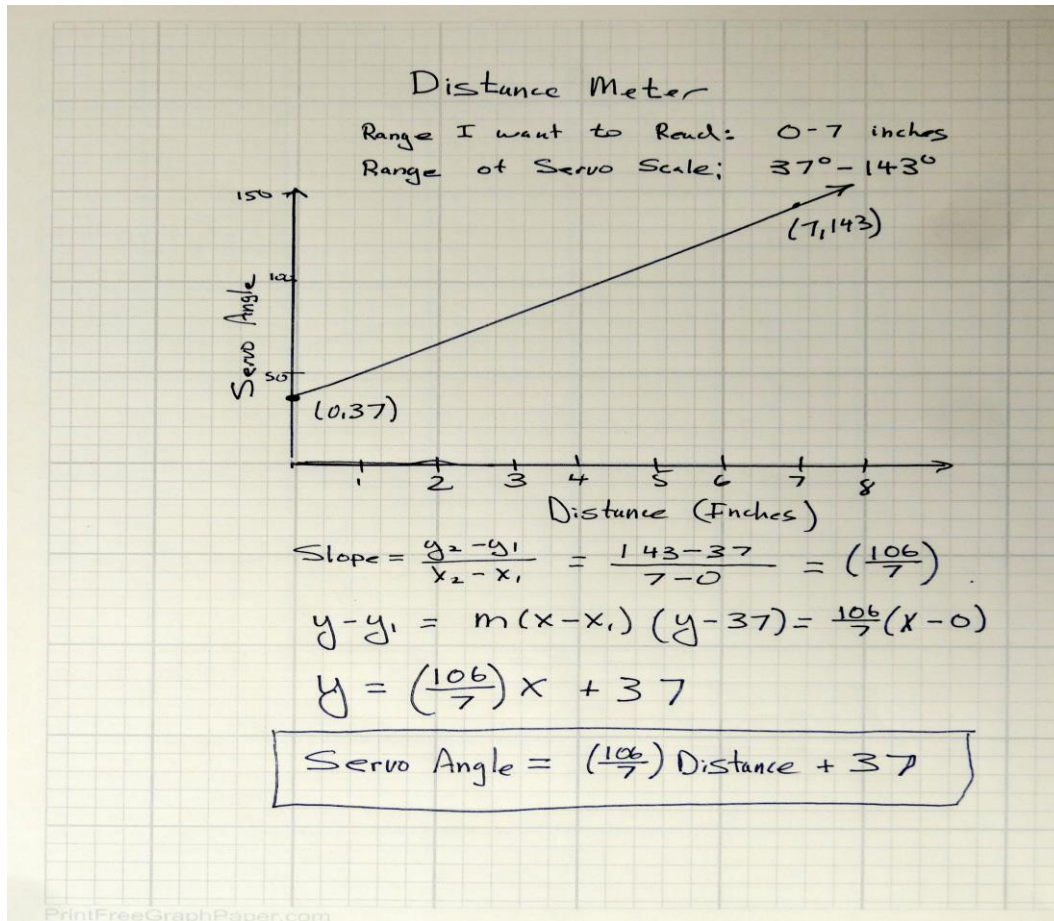 Distance Meter
Range I want to Read: 0-7 inches
Range of Servo Scale: 37° - 143°
150
(7,143)
100
Servo Angle
50
(0,37)
1 2 3 4 5 6 7 8
Distance (Inches)
Slope = (y₂ - y₁)/(x₂ - x₁) = (143-37)/(7-0) = (106/7)
y-y₁ = m(x-x₁) (y-37) = 106/7 (x-0)
y = (106/7) x + 37
Servo Angle = (106/7) Distance + 37
PrintFreeGraphPaper.com